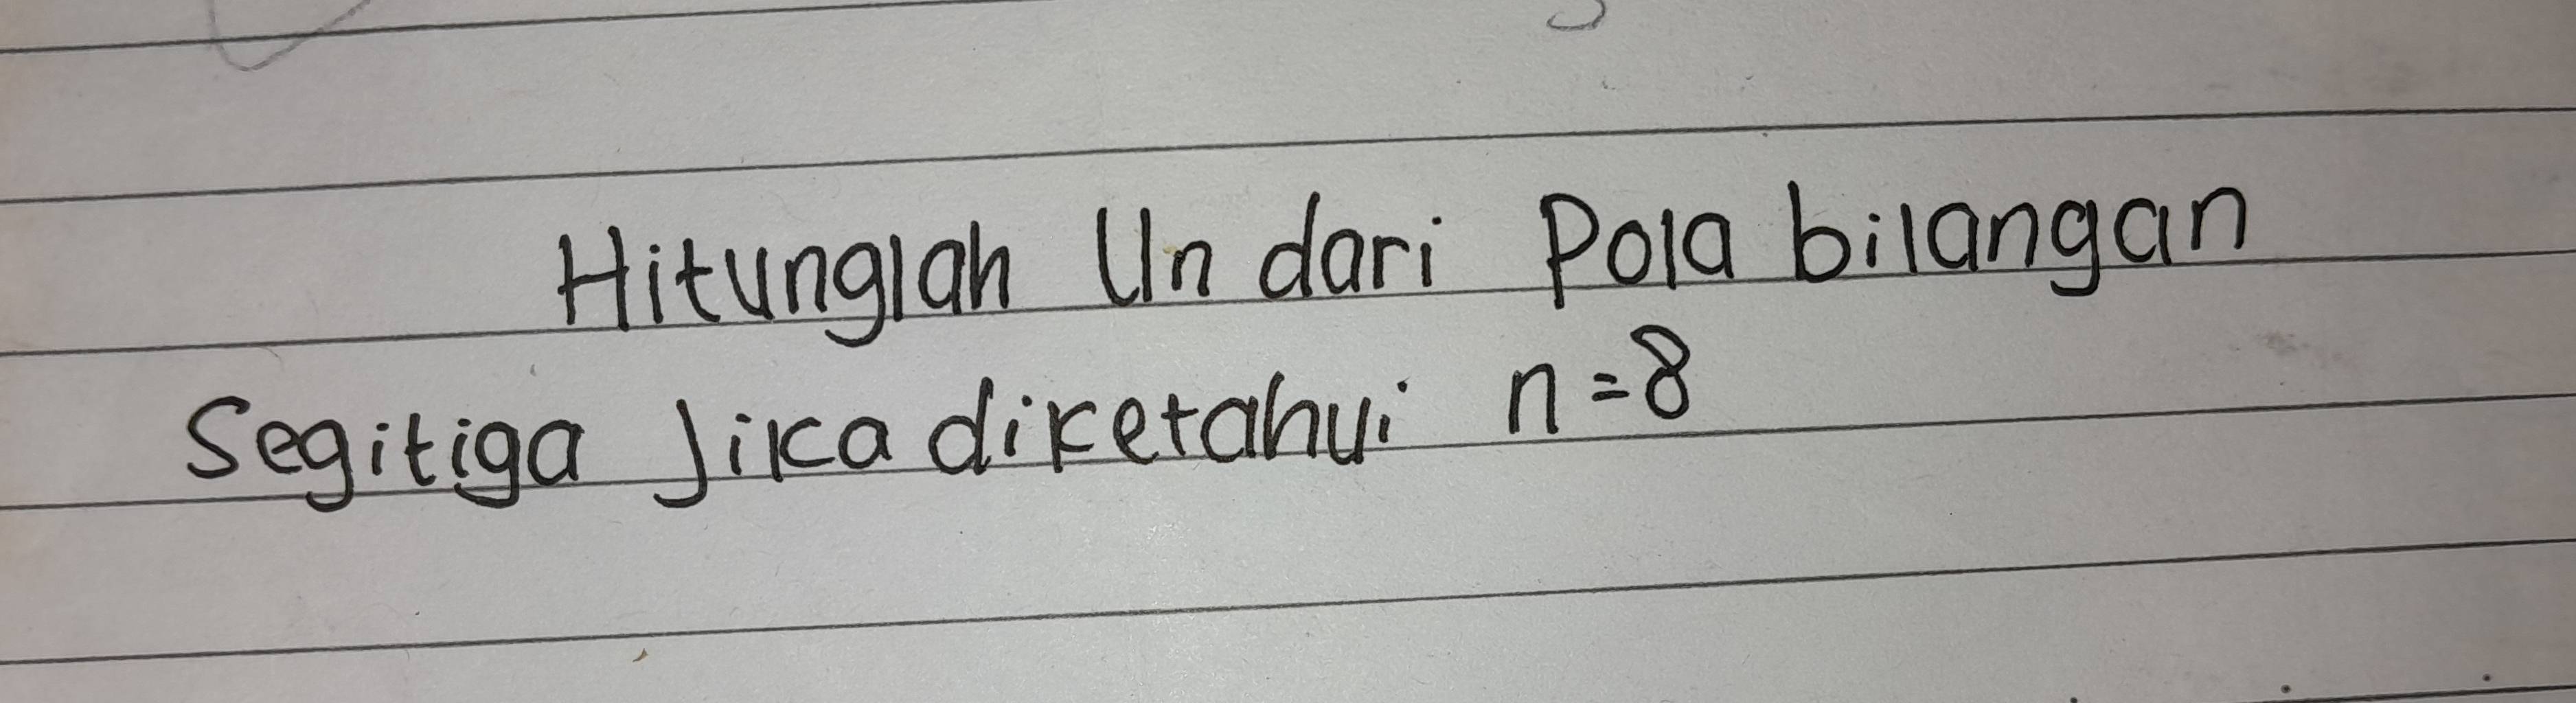 Hitunglah Un dari Pola bilangan
Segitiga Jika diketahui n=8